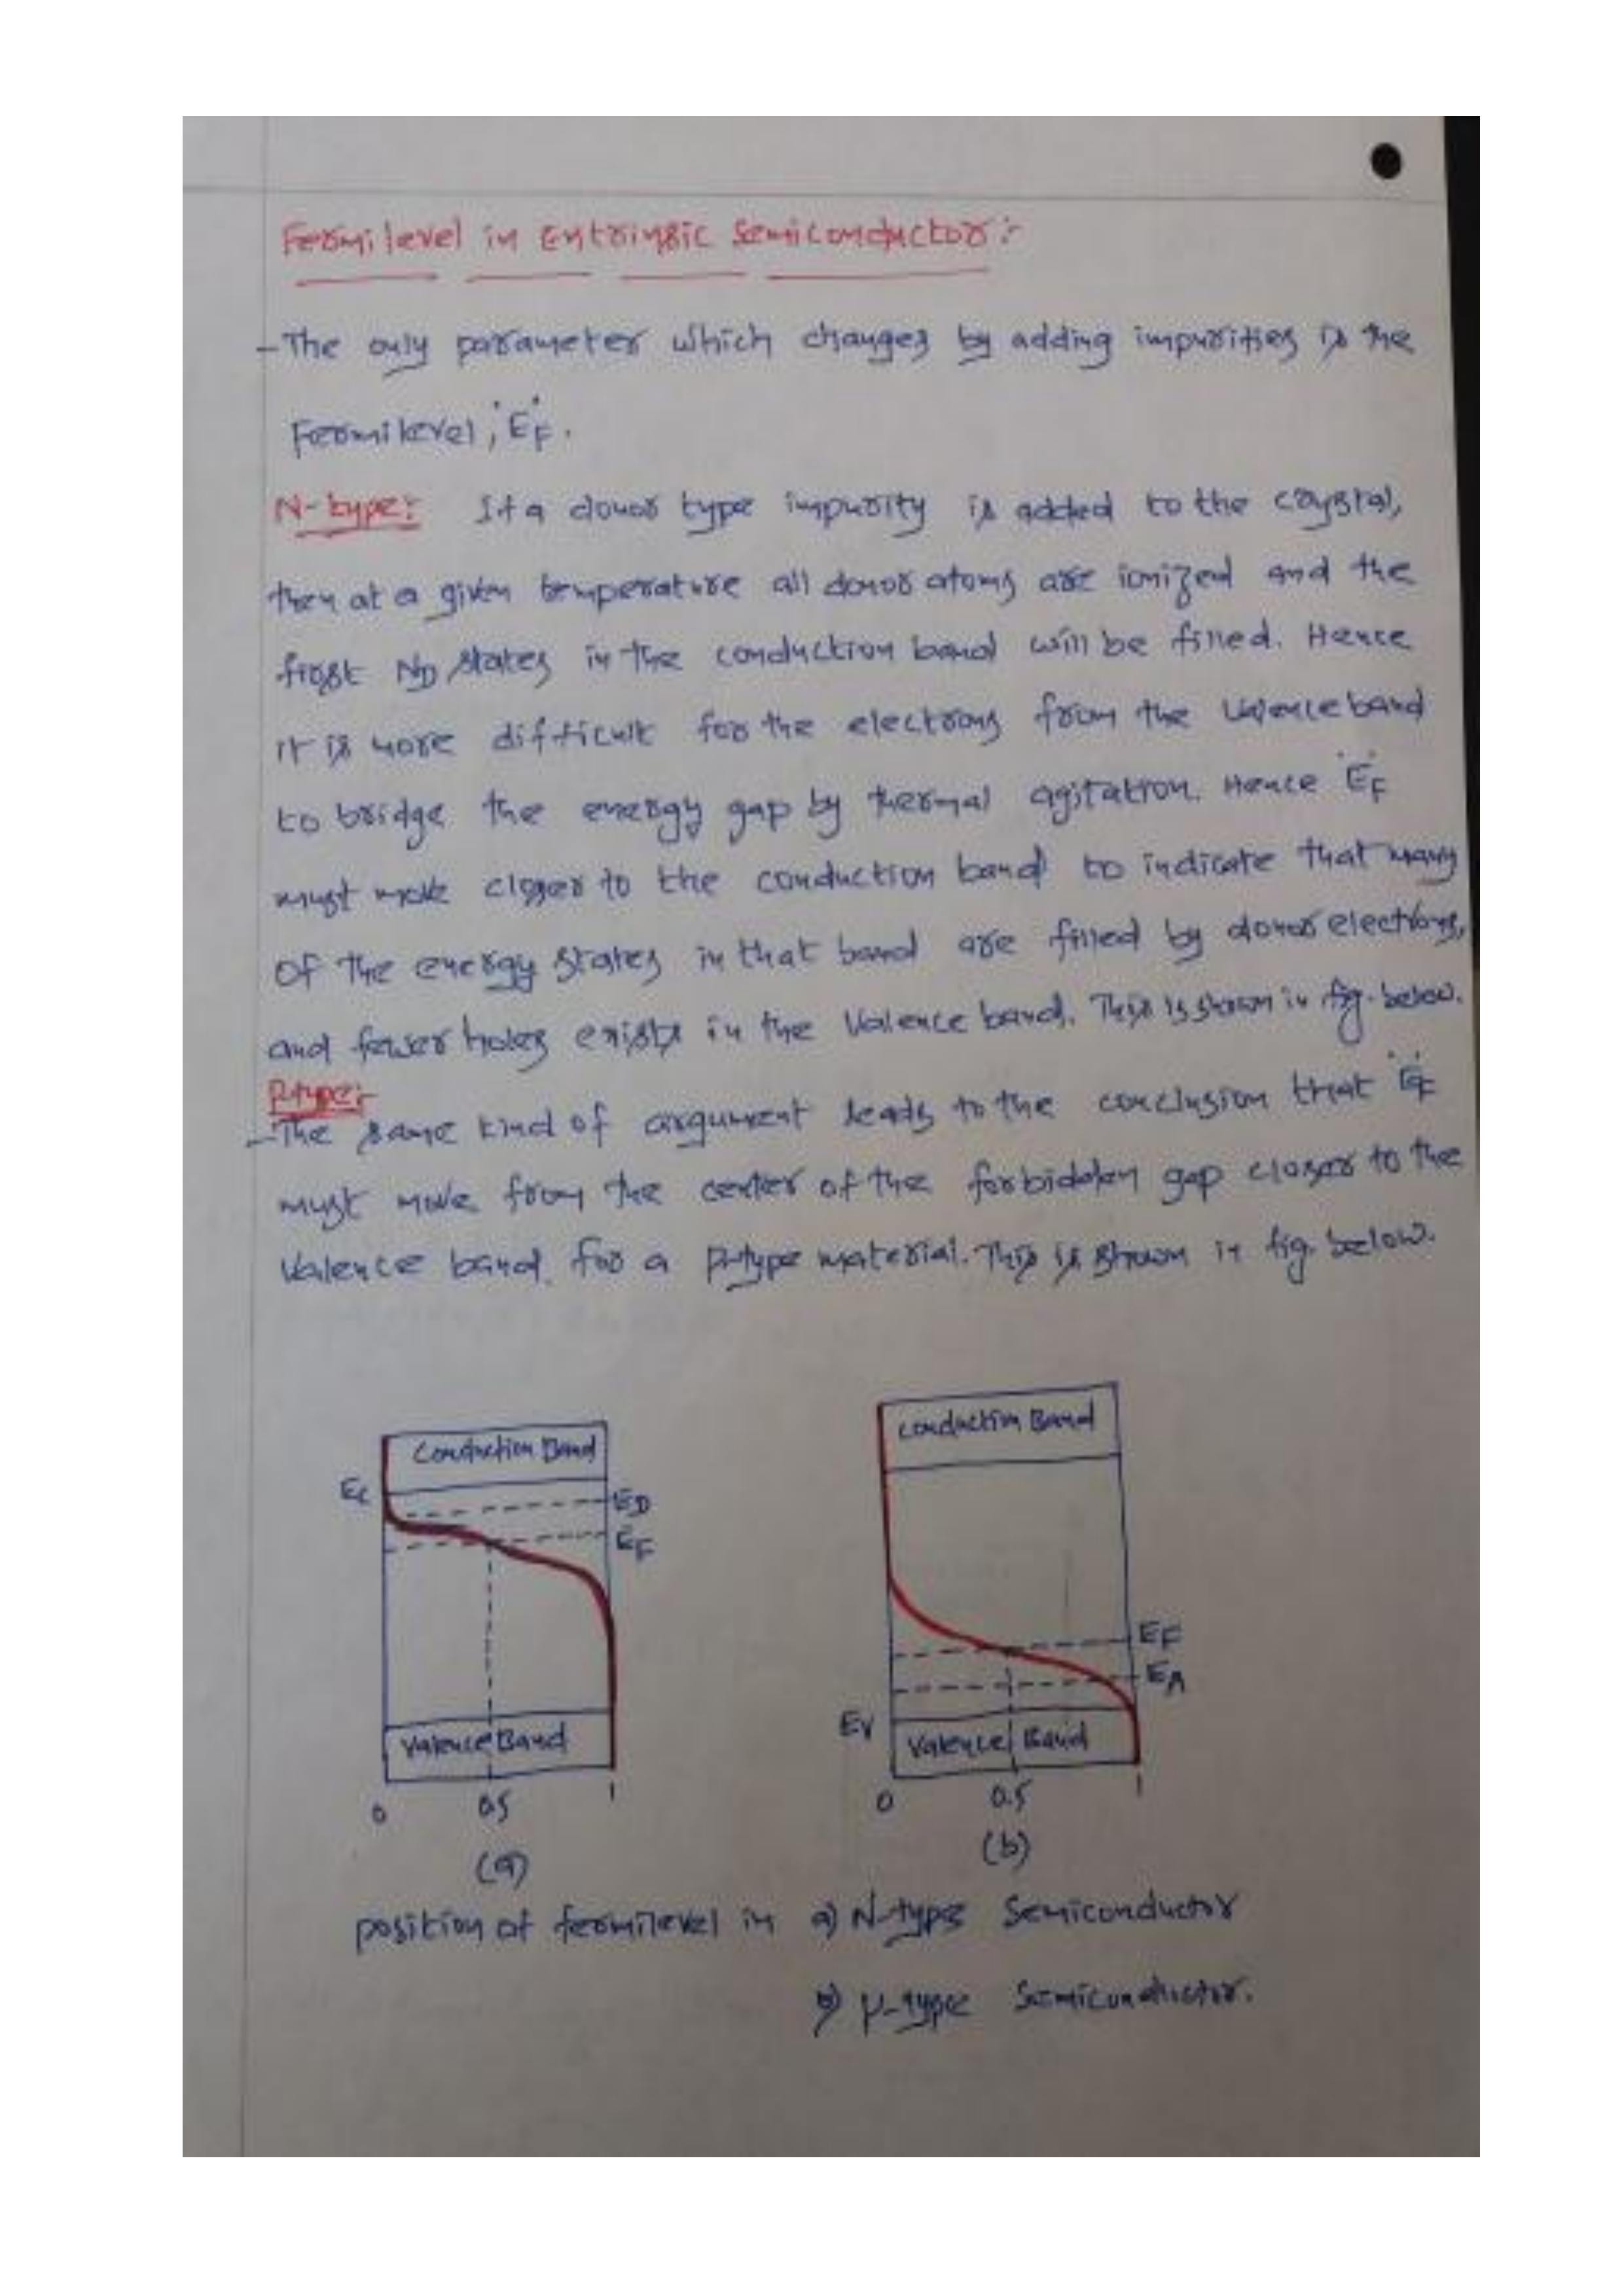 Fermi level in Extrinsic Semiconductor :-
- The only parameter which changes by adding impurities is the
Fermi level, 'EF'.
N-type:- If a donor type impurity is added to the crystal,
then at a given temperature all donor atoms are ionized and the
first ND states in the conduction band will be filled. Hence
it is more difficult for the electrons from the Valence band
to bridge the energy gap by thermal agitation. Hence 'EF'
must move closer to the conduction band to indicate that many
of the energy states in that band are filled by donor electrons,
and fewer holes exists in the Valence band. This is shown in fig. below.
P-type:-
- The same kind of argument leads to the conclusion that 'EF'
must move from the center of the forbidden gap closer to the
Valence band for a p-type material. This is shown in fig. below.
Conduction Band
EC
ED
EF
Valence Band
0 0.5 1
(a)
Conduction Band
EF
EA
EV
Valence Band
0 0.5 1
(b)
position of fermilevel in a) N-type Semiconductor
b) p-type Semiconductor.